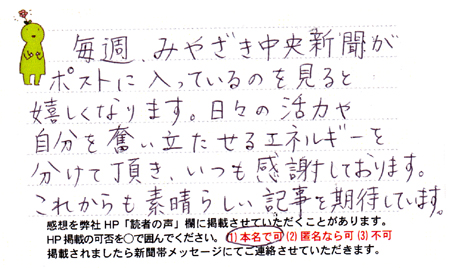 毎週、みやざき中央新聞が
ポストに入っているのを見ると
嬉しくなります。日々の活力や
自分を奮い立たせるエネルギーを
分けて頂き、いつも感謝しております。
これからも素晴らしい記事を期待しています。
感想を弊社HP「読者の声」欄に掲載させていただくことがあります。
HP掲載の可否を○で囲んでください。(1)本名で可(2)匿名なら可(3)不可
掲載されましたら新聞帯メッセージにてご連絡させていただきます。